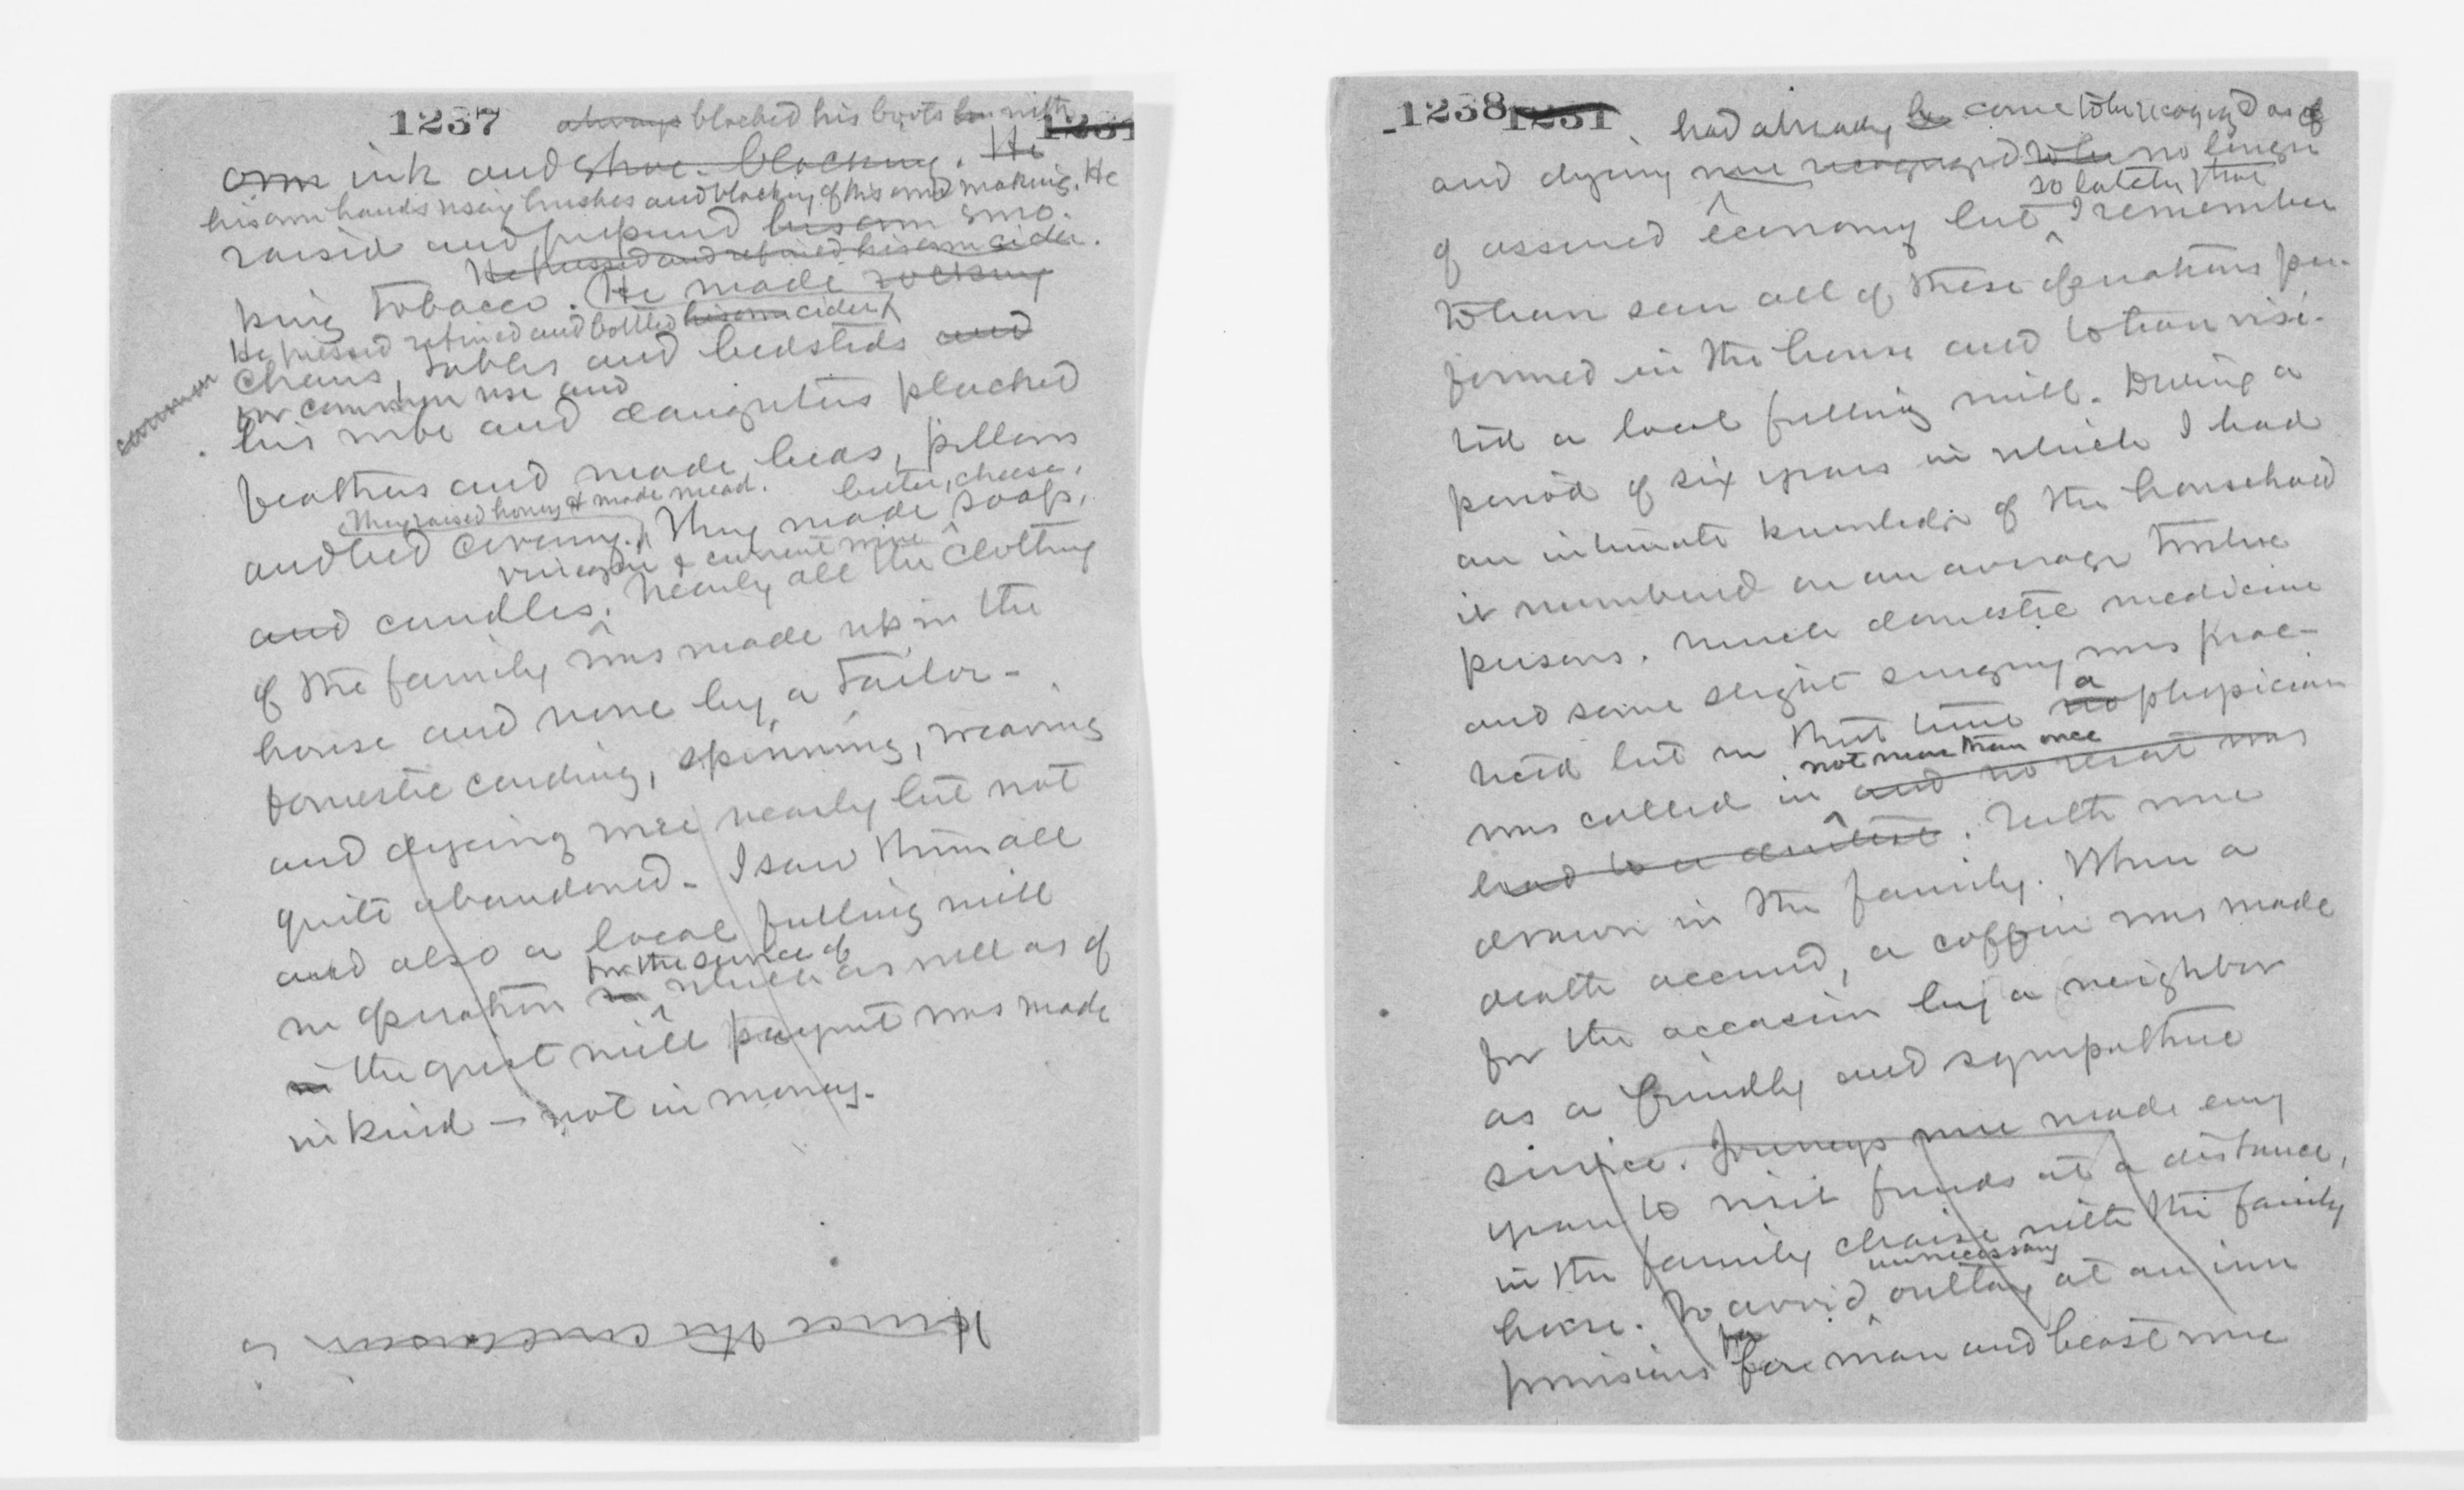 1237
always blacked his boots with
1231
own ink and shoe-blacking. He
his own hands using brushes and blacking of his own making. He
raised and prepared his own smo-
He pressed and refined his own cider.
king tobacco. He made rocking
He pressed refined and bottled his own cider
chairs, tables and bedsteds and
common
for common use and
his wife and daughters plucked
feathers and made beds, pillows
They raised honey & made mead. butter, cheese,
and bed covering. They made soap,
vinegar & currant wine
and candles. Nearly all the clothing
of the family was made up in the
house and none by a Tailor.
Domestic carding, spinning, weaving
and dyeing were nearly but not
quite abandoned. I saw them all
and also a local fulling mill
for the service of
in operation in which as well as of
in the grist mill payment was made
in kind — not in money.
Hence the conclusion is
1238 1231
had already be come to be recognized as of
and dying were recognized to be no longer
so lately that
of assured economy but I remember
to have seen all of these operations per-
formed in the house and to have visi-
ted a local fulling mill. During a
period of six years in which I had
an intimate knowledge of the household
it numbered on an average twelve
persons. Much domestic medicine
and some slight surgery was prac-
a
ticed but in that time no physician
not more than once
was called in and no resort was
had to a dentist. Teeth were
drawn in the family. When a
death occurred, a coffin was made
for the occasion by a neighbor
as a friendly and sympathetic
service. Journeys were made every
year to visit friends at a distance,
in the family chaise with the family
unnecessary
horse. To avoid outlay at an inn
for
provisions for man and beast were